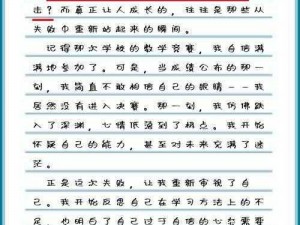 击？而真正让人成长的，往往是那些从
失败中重新站起来的瞬间。
记得那次学校的数学竞赛，我自信满
满地参加了。可是，当成绩公布的那一
刻，我简直不敢相信自己的眼睛——我
居然没有进入决赛。那一刻，我仿佛跌
入了深渊，七情低落到了极点。我开始
怀疑自己的能力，甚至对未来充满了迷
茫。
正是这次失败，让我重新审视了自
己。我开始反思自己在学习方法上的不
足，也明白了过于自信的七态需要